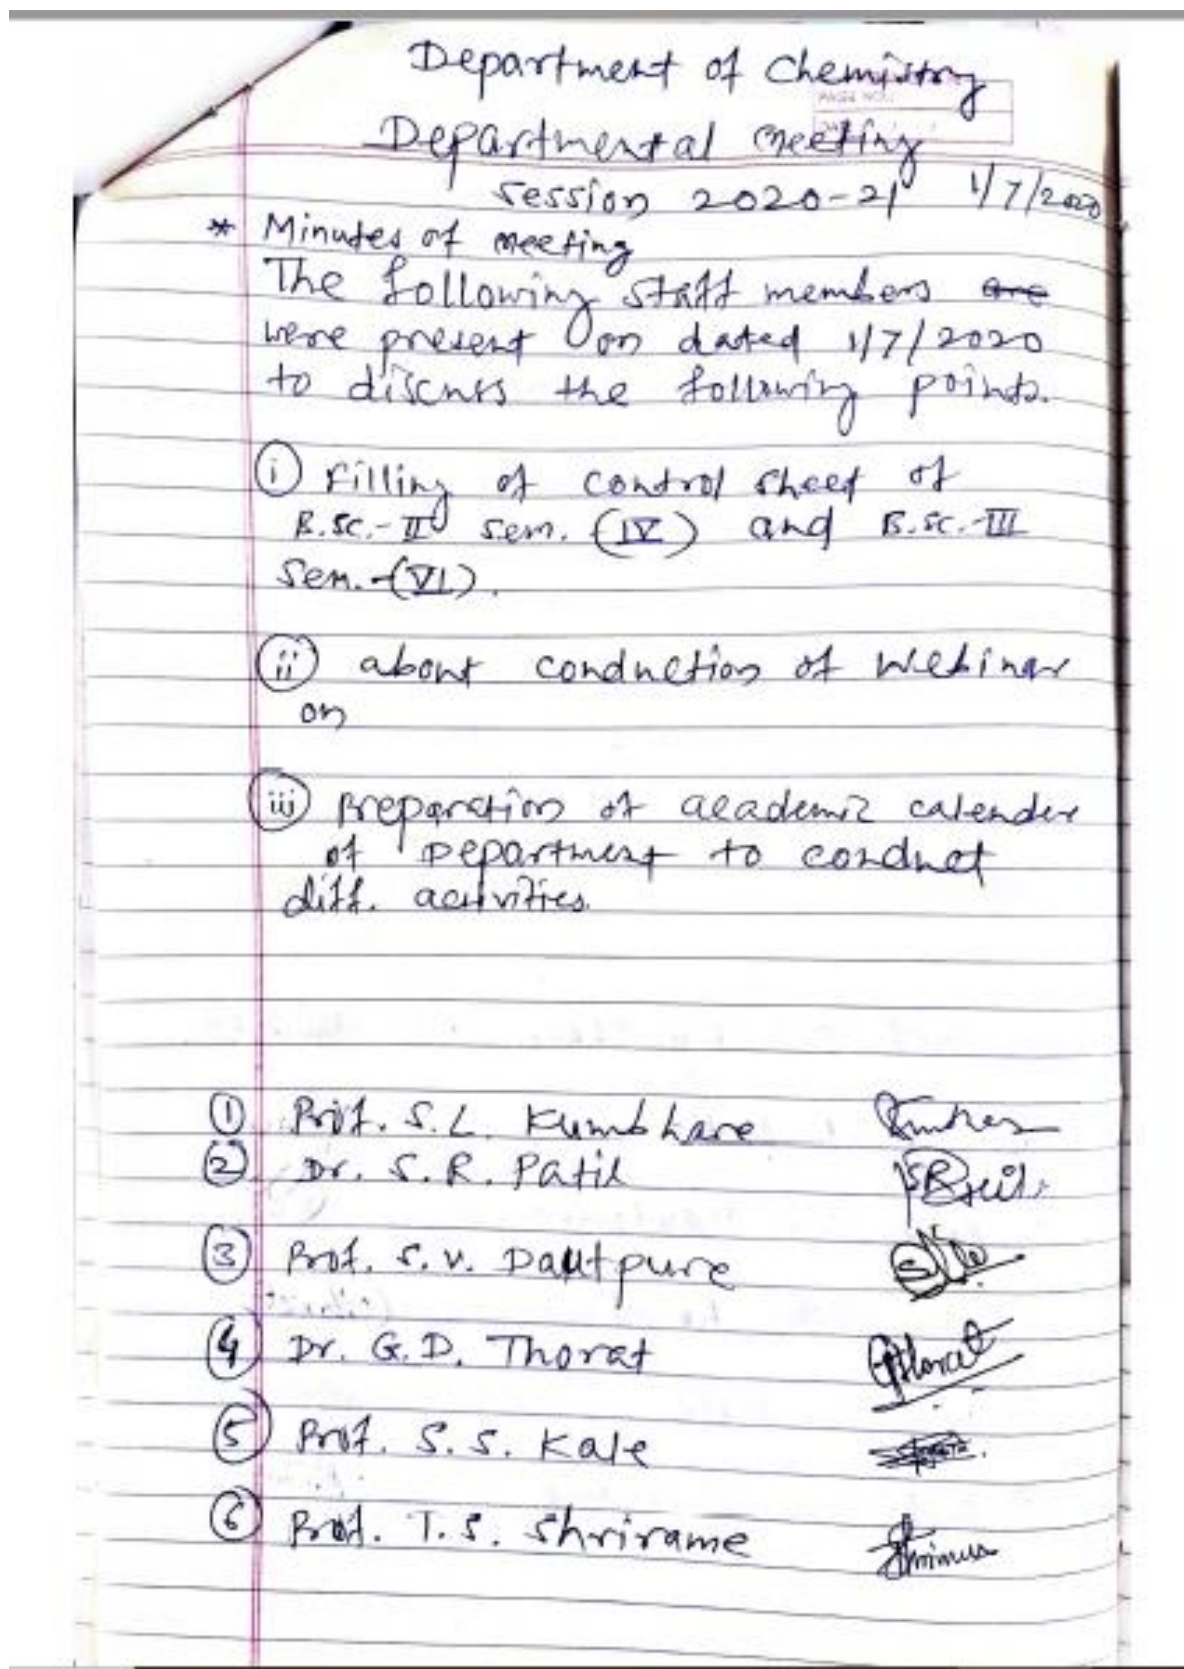 Department of Chemistry
PAGE NO.:
Departmental meeting
session 2020-21 1/7/2020
* Minutes of meeting
The following staff members are
were present on dated 1/7/2020
to discuss the following points.
(i) Filling of control sheet of
B.Sc.-II sem. (IV) and B.Sc.-III
Sem.-(VI).
(ii) about conduction of Webinar
on
(iii) Preparation of academic calender
of Department to conduct
diff. activities.
(1) Prof. S.L. Kumbhare
(2) Dr. S.R. Patil
(3) Prof. S.V. Dautpure
(4) Dr. G.D. Thorat
(5) Prof. S.S. Kale
(6) Prof. T.S. Shrirame